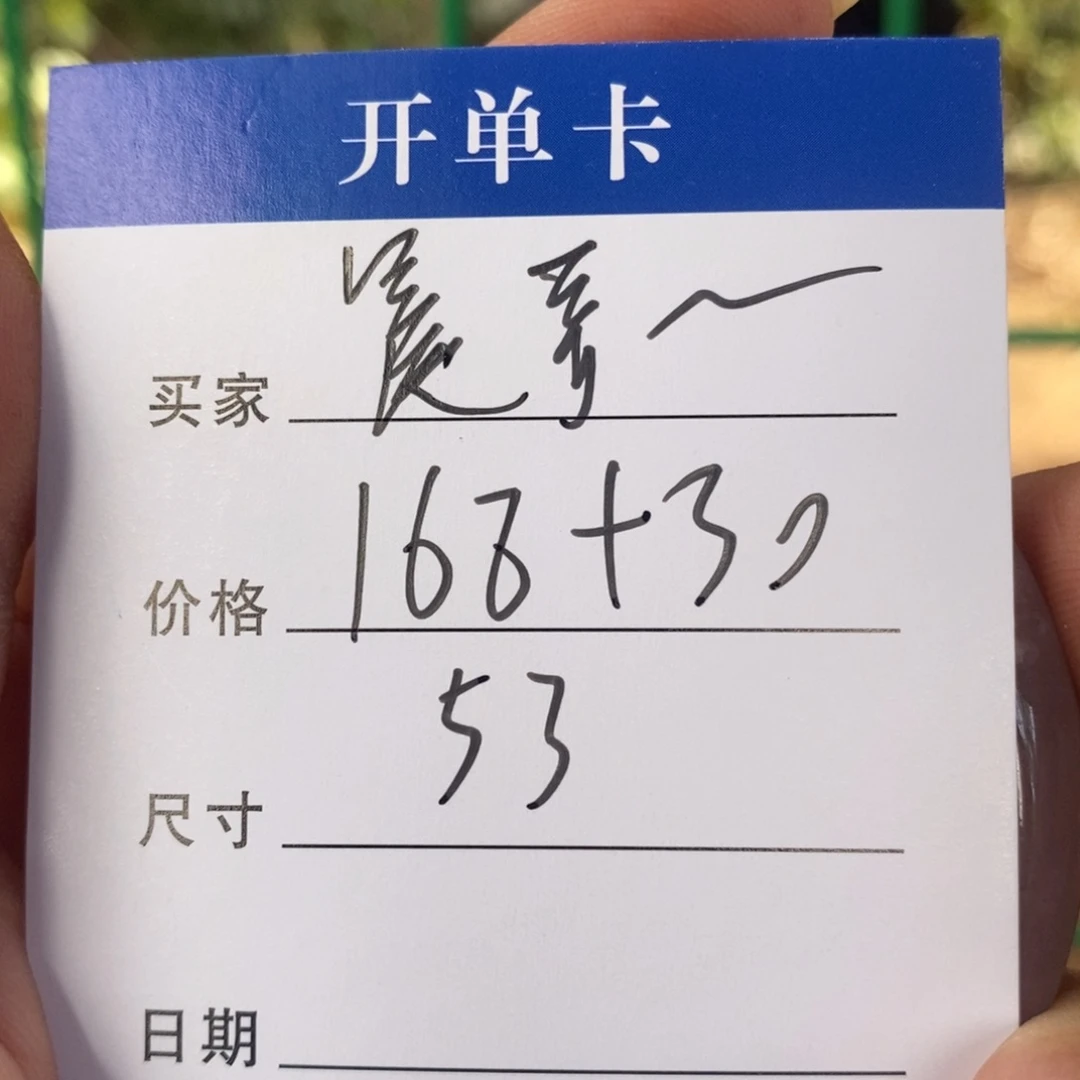 开单卡
买家
价格 168+30
尺寸 53
日期